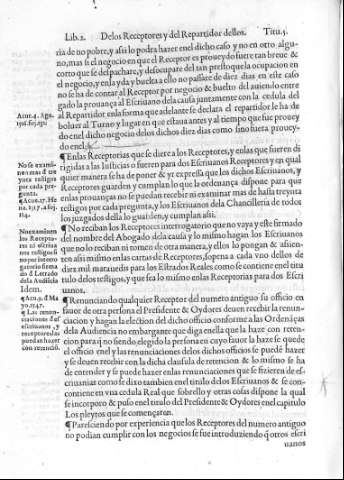 Lib. 2. Delos Receptores y del Repartidor dellos. Titu. 5.
ria de no pobre, y assi lo podra hazer enel dicho caso y no en otro algu-
no, mas si el negocio en que el Receptor es proueydo fuere tan breue &
corto que se despachare, y desocupare del tan presto que la ocupacion en
el negocio, y en la yda y buelta a ello no passare de diez dias en este caso
no se ha de contar al Receptor por negocio & buelto del auiendo entre
gado la prouança al Escriuano dela causa juntamente con la cedula del
al Repartidor enla forma que adelante se declara el repartidor le ha de
boluer al Turno y lugar en que estaua antes y al tiempo que fue prouey
do enel dicho negocio delos dichos diez dias como sino fuera prouey-
do enel.
Acue. 4. Agu.
¶ Enlas Receptorias que se diere a los Receptores, y enlas que fueren di
rigidas a las Iusticias o fueren para dos Escriuanos Receptores y en qual
quier manera se ha de poner & y expressa que los dichos Escriuanos, y
Receptores guarden y cumplan lo que la ordenança dispone para que
enlas prouanças no se puedan recebir ni examinar mas de hasta treynta
testigos por cada pregunta, y los Escriuanos dela Chancilleria de todos
los juzgados della lo guarden, y cumplan assi.
No se exami-
nen mas d un
yta testigos
por cada pre-
gunta.
¶ No reciban los Receptores interrogatorio que no vaya y este firmado
del nombre del Abogado dela causa y lo mismo hagan los Escriuanos
que no lo reciban ni tomen de otra manera, y ellos lo pongan & assien-
ten assi mismo enlas cartas de Receptores, so pena a cada vno dellos de
diez mil marauedis para los Estrados Reales como se contiene enel titu
lo delos testigos, y que sea lo mismo enlas Receptorias para dos Escri
uanos,
No examinen
los Recepto-
res ni escriua
nos testigos si
no por interro
gatorio firma
do d Letrado
dela Audiēcia
Idem.
¶ Renunciando qualquier Receptor del numero antiguo su officio en
fauor de otra persona el Presidente & Oydores deuen recebir la renun-
ciacion y hagan la election del dicho officio conforme a las Ordenāças
dela Audiencia no embargante que diga enella que la haze con reten-
cion para q̄ no siendo elegido la persona en cuyo fauor la haze se quede
el officio enel y las renunciaciones delos dichos officios se puedē hazer
y se deuen recebir con la dicha clausula de retencion & lo mismo se ha
de entender y se puede hazer enlas renunciaciones que se fizieren de es-
criuanias como se dixo tambien enel titulo delos Escriuanos & se con-
tiene en vna cedula Real que sobrello y otras cosas dispone la qual
se incorporo & puso enel titulo del Presidente & Oydores enel capitulo
Los pleytos que se començaren.
¶ Las renun-
ciaciones d los
escriuanos, y
receptores las
puedan hazer
con retenciō.
¶ Paresciendo por experiencia que los Receptores del numero antiguo
no podian cumplir con los negocios se fue introduziendo q̄ otros escri
uanos